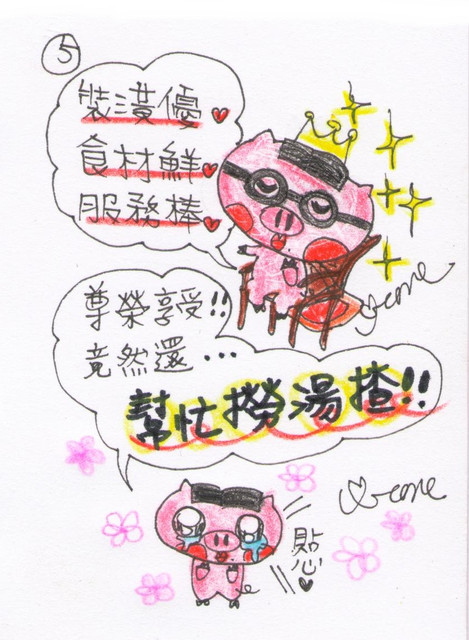 ⑤
裝潢優
食材鮮
服務棒
尊榮享受!!
竟然還...
幫忙撈湯揸!!
貼心